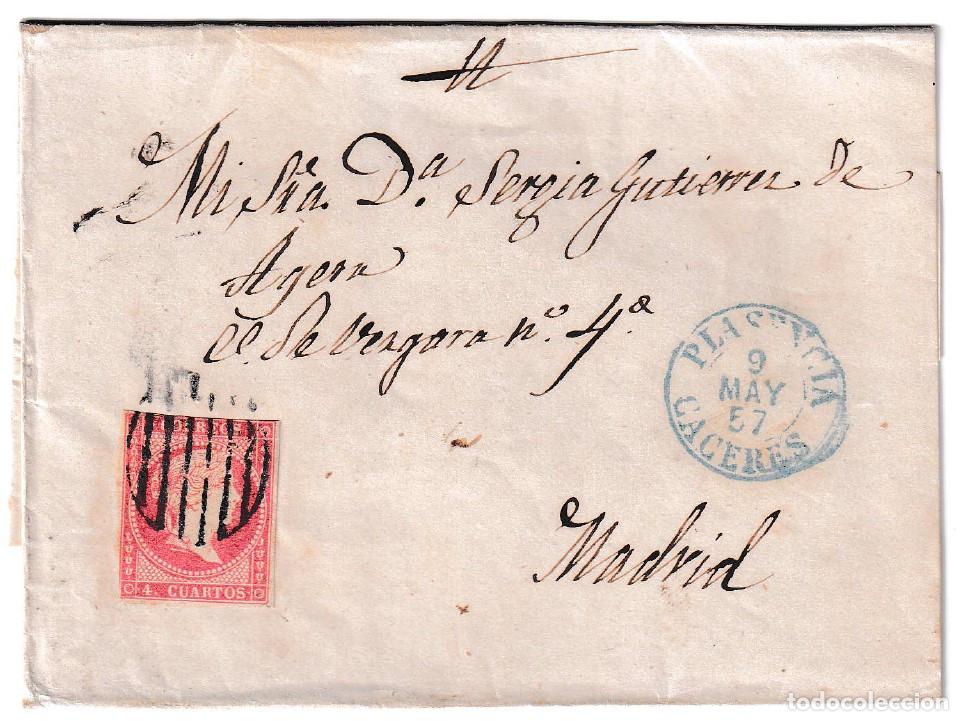 Mi Sra. Dª. Sergia Gutierrez de
Ayerra
Cl. de Vergara nº. 4ª.
PLASENCIA
9
MAY
57
CACERES
CORREOS
4 CUARTOS
Madrid
todocoleccion